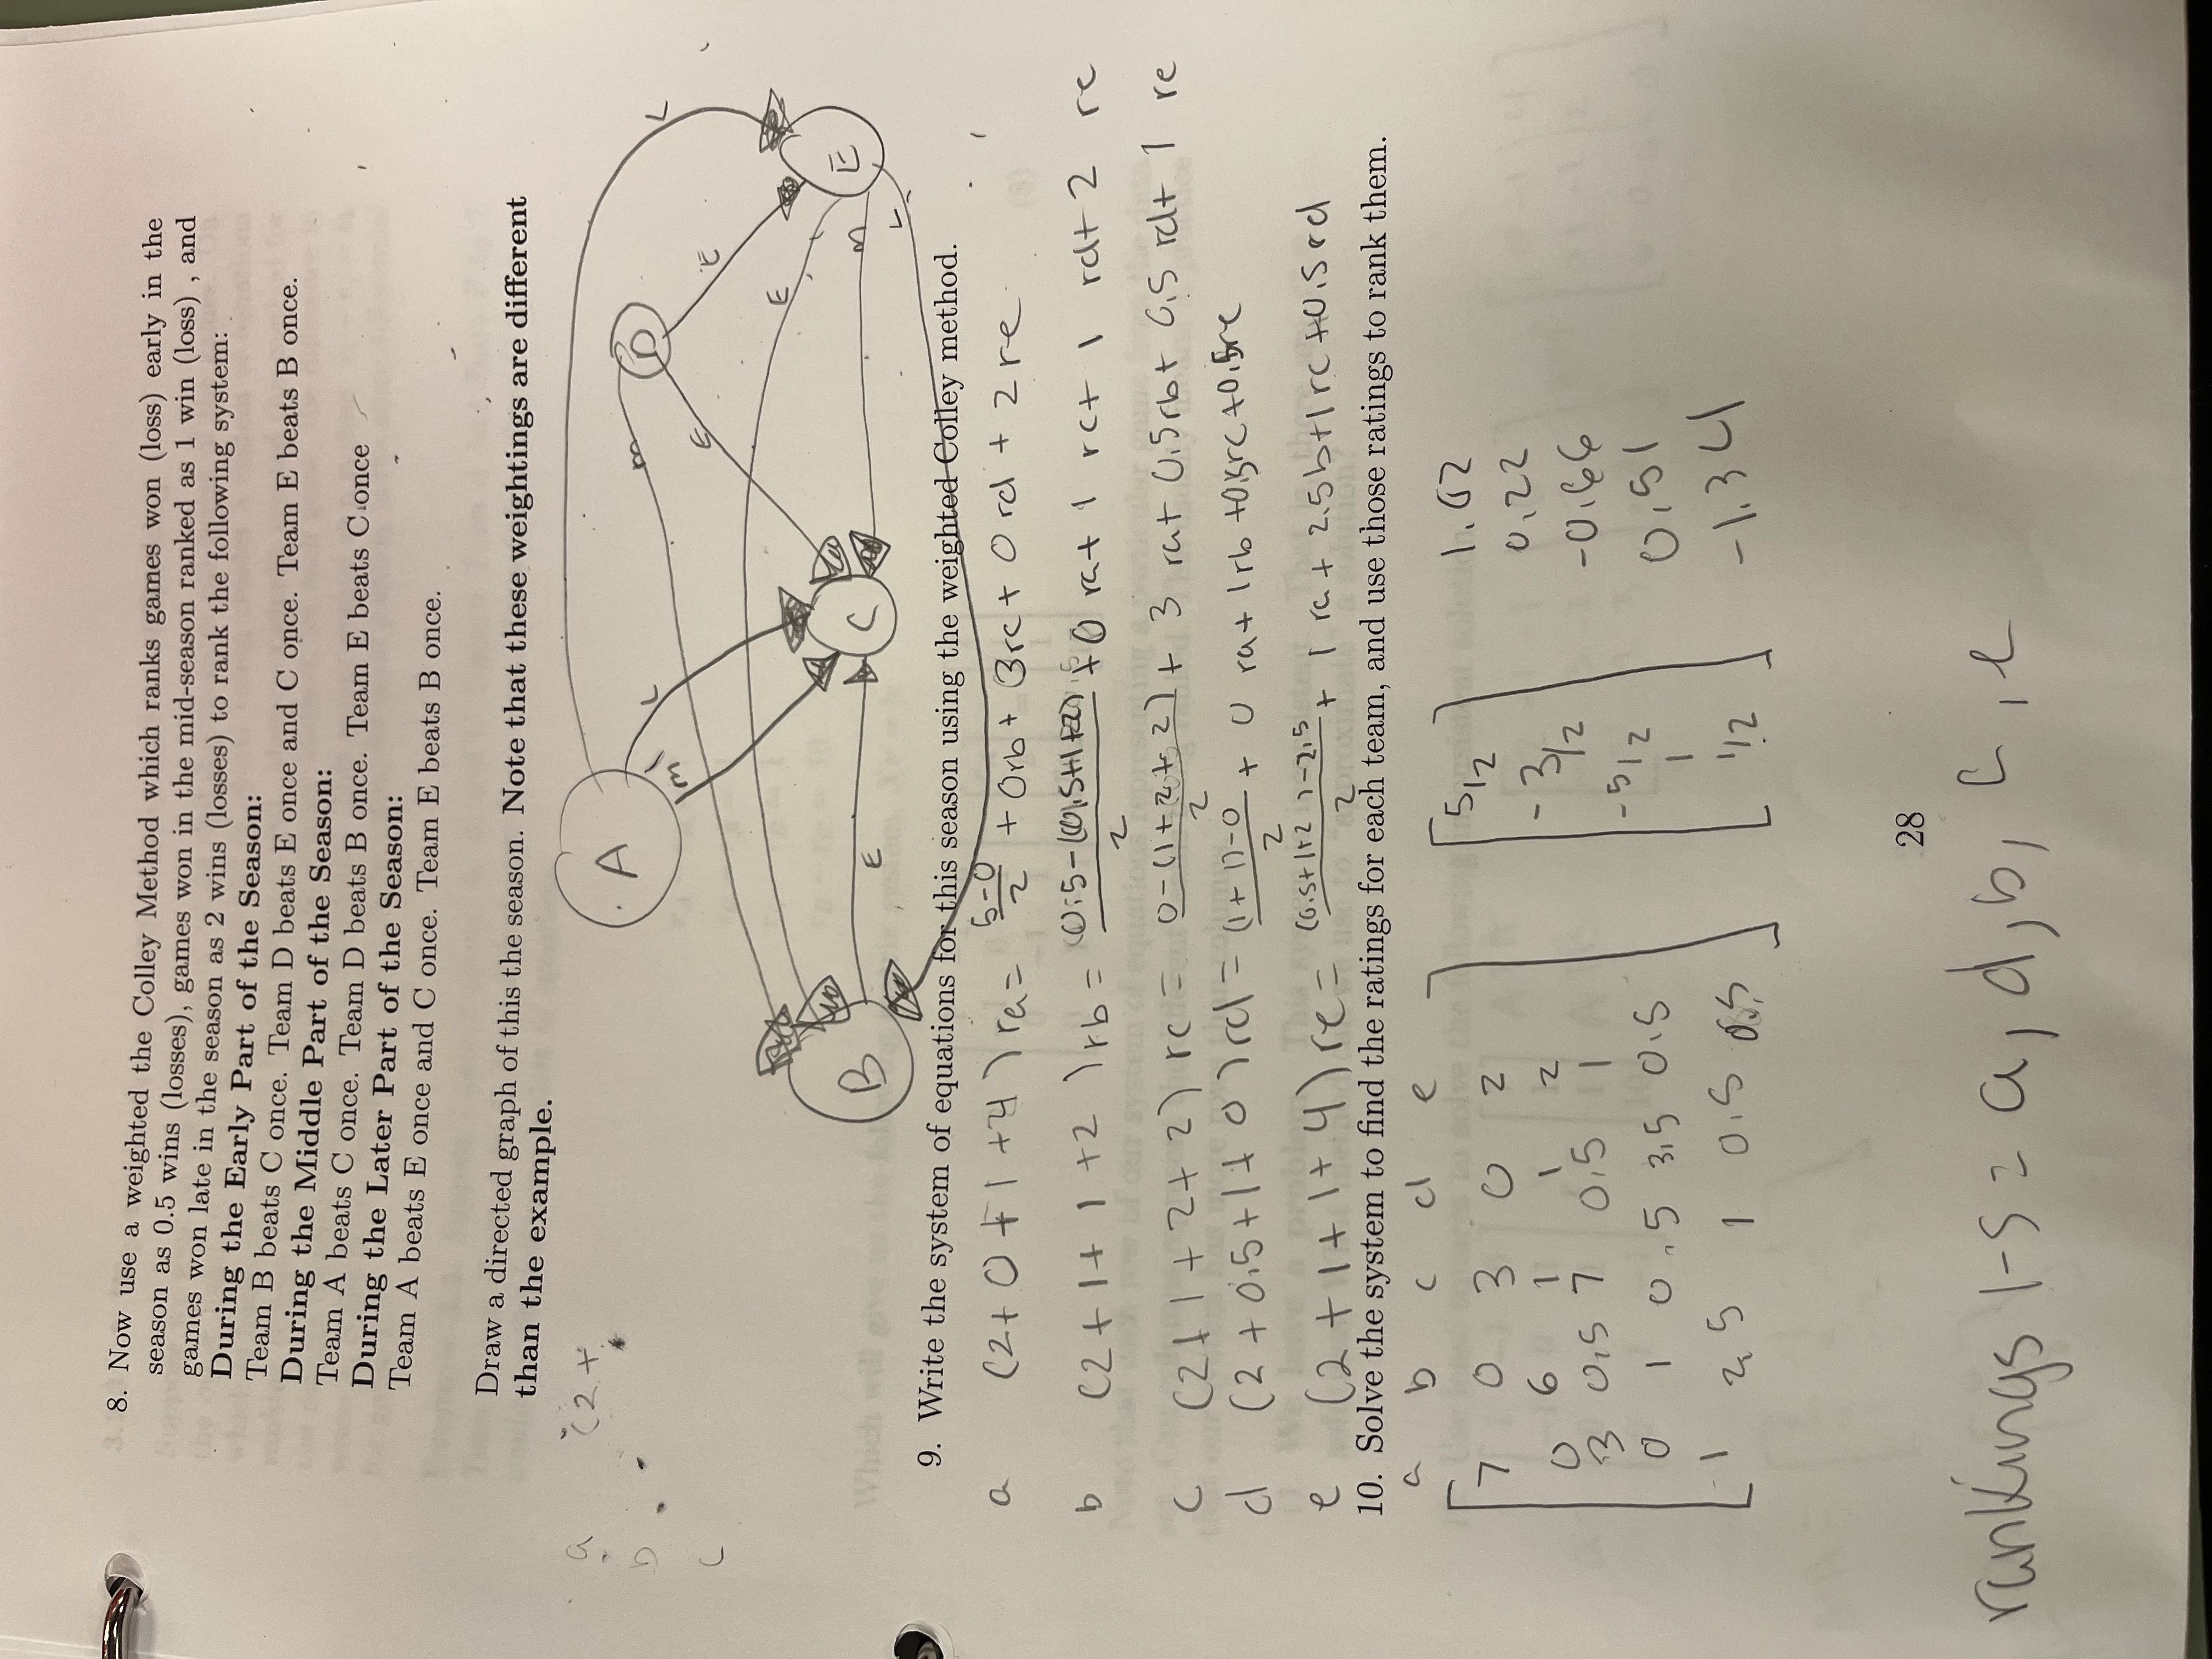 8. Now use a weighted the Colley Method which ranks games won (loss) early in the
season as 0.5 wins (losses), games won in the mid-season ranked as 1 win (loss) , and
games won late in the season as 2 wins (losses) to rank the following system:
During the Early Part of the Season:
Team B beats C once. Team D beats E once and C once. Team E beats B once.
During the Middle Part of the Season:
Team A beats C once. Team D beats B once. Team E beats C once
During the Later Part of the Season:
Team A beats E once and C once. Team E beats B once.
Draw a directed graph of this the season. Note that these weightings are different
than the example.
a (2+
b
c
A D
L m L
m E E
E
B C E
E m
L
9. Write the system of equations for this season using the weighted Colley method.
a (2+0+1+4)ra= 5-0/2 + 0rb+ 3rc+ 0rd + 2re
b (2+1+1+2)rb= 0.5-(0.5+1+2)/2 +0 ra+ 1 rc+ 1 rd+ 2 re
c (2+1+2+2) rc = 0-(1+2+2)/2 + 3 ra+ 0.5rb+ 0.5 rd+ 1 re
d (2+0.5+1+0)rd= (1+1)-0/2 + 0 ra+ 1rb +0.5rc+0.5re
e (2+1+1+4)re= (0.5+1+2)-2.5/2 + 1 ra+ 2.5b+1rc+0.5rd
10. Solve the system to find the ratings for each team, and use those ratings to rank them.
a b c d e
7 0 3 0 2 5/2 1.02
0 6 1 1 2 -3/2 0.22
3 0.5 7 0.5 1 -5/2 -0.66
0 1 0.5 3.5 0.5 1 0.51
1 2.5 1 0.5 1/2 -1.34
28
rankings 1-5 = a, d, b, c, e